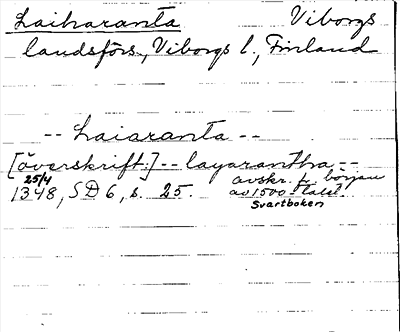 Laiharanta Viborgs
landsförs., Viborgs l., Finland
-- Laiaranta --
[överskrift:] -- layarantha --
25/4
1348, SD 6, s. 25. avskr. fr. början
av 1500-talet.
Svartboken